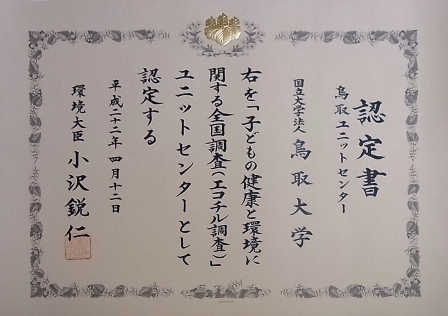 認定書
鳥取ユニットセンター
国立大学法人 鳥取大学
右を「子どもの健康と環境に
関する全国調査(エコチル調査)」
ユニットセンターとして
認定する
平成二十二年四月十二日
環境大臣 小沢鋭仁